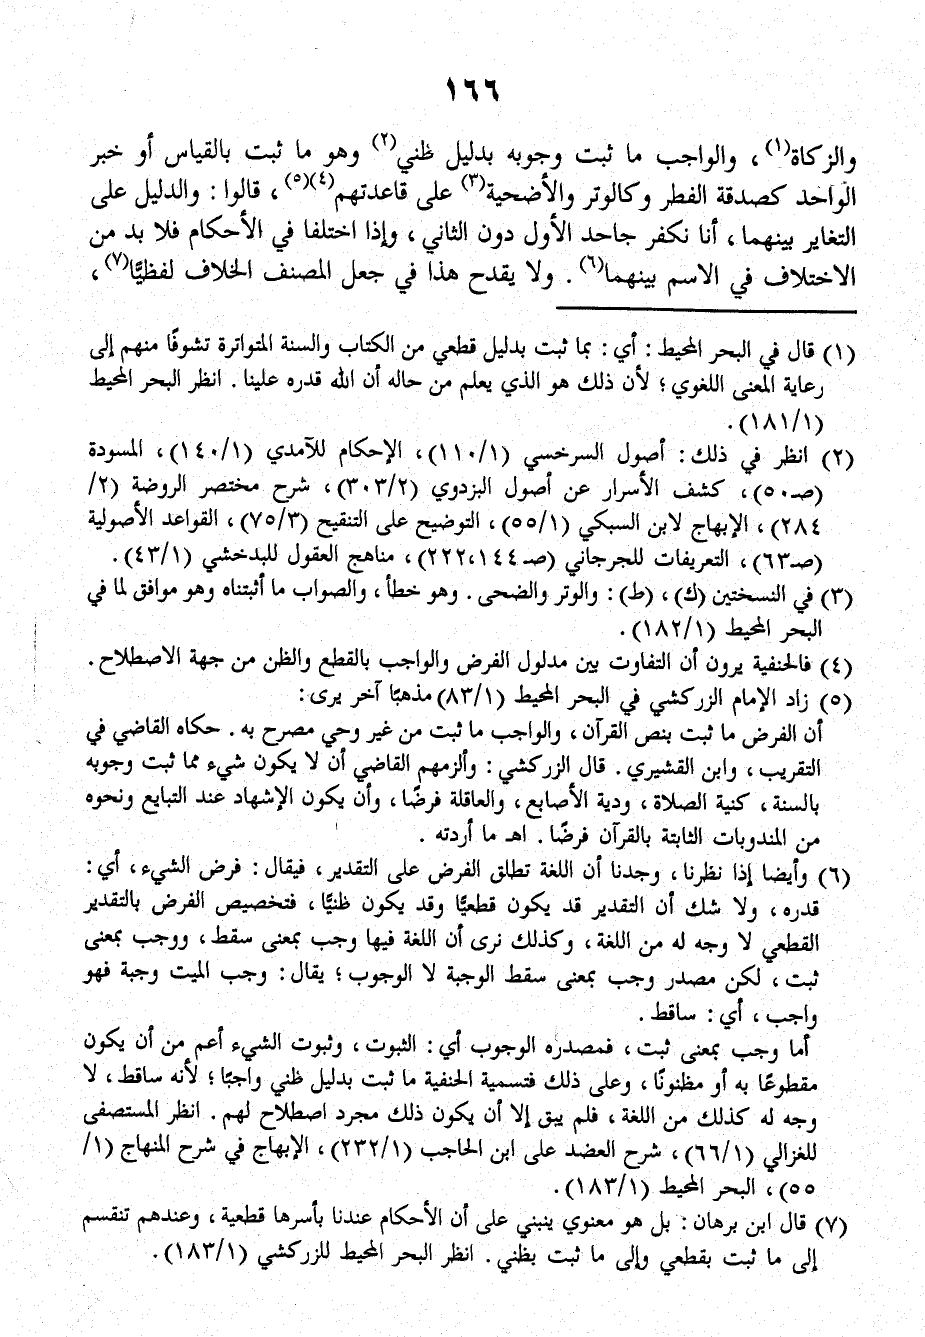 ١٦٦
والزكاة(١)، والواجب ما ثبت وجوبه بدليل ظني(٢) وهو ما ثبت بالقياس أو خبر
الواحد كصدقة الفطر وكالوتر والأضحية(٣) على قاعدتهم(٤)(٥)، قالوا: والدليل على
التغاير بينهما، أنا نكفر جاحد الأول دون الثاني، وإذا اختلفا في الأحكام فلا بد من
الاختلاف في الاسم بينهما(٦). ولا يقدح هذا في جعل المصنف الخلاف لفظيًّا(٧)،
(١) قال في البحر المحيط: أي: بما ثبت بدليل قطعي من الكتاب والسنة المتواترة تشوفًا منهم إلى
رعاية المعنى اللغوي؛ لأن ذلك هو الذي يعلم من حاله أن الله قدره علينا. انظر البحر المحيط
(١/١٨١).
(٢) انظر في ذلك: أصول السرخسي (١/١١٠)، الإحكام للآمدي (١/١٤٠)، المسودة
(صـ٥٠)، كشف الأسرار عن أصول البزدوي (٢/٣٠٣)، شرح مختصر الروضة (٢/
٢٨٤)، الإبهاج لابن السبكي (١/٥٥)، التوضيح على التنقيح (٣/٧٥)، القواعد الأصولية
(صـ٦٣)، التعريفات للجرجاني (صـ١٤٤،٢٢٢)، مناهج العقول للبدخشي (١/٤٣).
(٣) في النسختين (ك)، (ط): والوتر والضحى. وهو خطأ، والصواب ما أثبتناه وهو موافق لما في
البحر المحيط (١/١٨٢).
(٤) فالحنفية يرون أن التفاوت بين مدلول الفرض والواجب بالقطع والظن من جهة الاصطلاح.
(٥) زاد الإمام الزركشي في البحر المحيط (١/٨٣) مذهبًا آخر يرى:
أن الفرض ما ثبت بنص القرآن، والواجب ما ثبت من غير وحي مصرح به. حكاه القاضي في
التقريب، وابن القشيري. قال الزركشي: وألزمهم القاضي أن لا يكون شيء مما ثبت وجوبه
بالسنة، كنية الصلاة، ودية الأصابع، والعاقلة فرضًا، وأن يكون الإشهاد عند التبايع ونحوه
من المندوبات الثابتة بالقرآن فرضًا. اهـ ما أردته.
(٦) وأيضا إذا نظرنا، وجدنا أن اللغة تطلق الفرض على التقدير، فيقال: فرض الشيء، أي:
قدره، ولا شك أن التقدير قد يكون قطعيًّا وقد يكون ظنيًّا، فتخصيص الفرض بالتقدير
القطعي لا وجه له من اللغة، وكذلك نرى أن اللغة فيها وجب بمعنى سقط، ووجب بمعنى
ثبت، لكن مصدر وجب بمعنى سقط الوجبة لا الوجوب؛ يقال: وجب الميت وجبة فهو
واجب، أي: ساقط.
أما وجب بمعنى ثبت، فمصدره الوجوب أي: الثبوت، وثبوت الشيء أعم من أن يكون
مقطوعًا به أو مظنونًا، وعلى ذلك فتسمية الحنفية ما ثبت بدليل ظني واجبًا؛ لأنه ساقط، لا
وجه له كذلك من اللغة، فلم يبق إلا أن يكون ذلك مجرد اصطلاح لهم. انظر المستصفى
للغزالي (١/٦٦)، شرح العضد على ابن الحاجب (١/٢٣٢)، الإبهاج في شرح المنهاج (١/
٥٥)، البحر المحيط (١/١٨٣).
(٧) قال ابن برهان: بل هو معنوي ينبني على أن الأحكام عندنا بأسرها قطعية، وعندهم تنقسم
إلى ما ثبت بقطعي وإلى ما ثبت بظني. انظر البحر المحيط للزركشي (١/١٨٣).